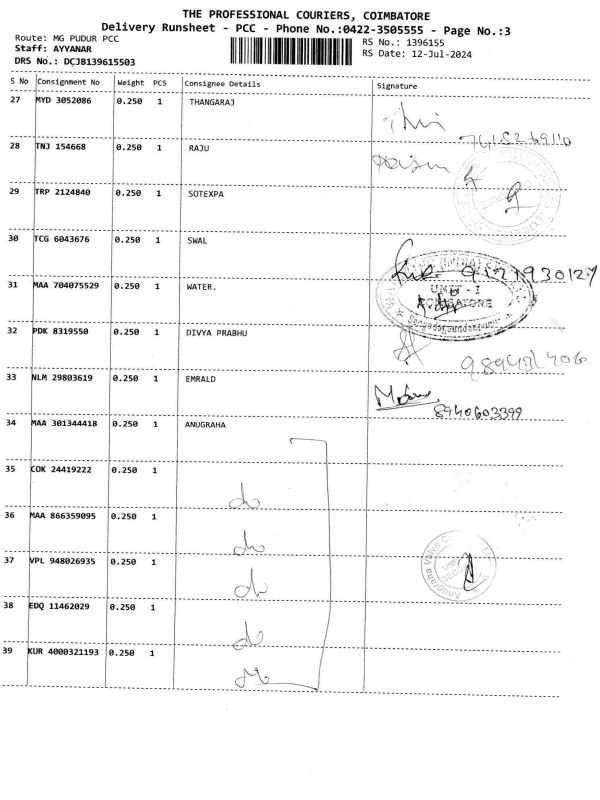 THE PROFESSIONAL COURIERS, COIMBATORE
Delivery Runsheet - PCC - Phone No.:0422-3505555 - Page No.:3
Route: MG PUDUR PCC
RS No.: 1396155
Staff: AYYANAR
RS Date: 12-Jul-2024
DRS No.: DCJB139615503
S No Consignment No Weight PCS Consignee Details Signature
27 MYD 3052086 0.250 1 THANGARAJ
28 TNJ 154668 0.250 1 RAJU
29 TRP 2124840 0.250 1 SOTEXPA
30 TCG 6043676 0.250 1 SWAL
31 MAA 704075529 0.250 1 WATER.
UNIT - I
COIMBATORE
32 PDK 8319550 0.250 1 DIVYA PRABHU
33 NLM 29803619 0.250 1 EMRALD
8940603399
34 MAA 301344418 0.250 1 ANUGRAHA
35 COK 24419222 0.250 1
do
36 MAA 866359095 0.250 1
do
37 VPL 948026935 0.250 1
Anugraha Valve
do
38 EDQ 11462029 0.250 1
do
39 KUR 4000321193 0.250 1